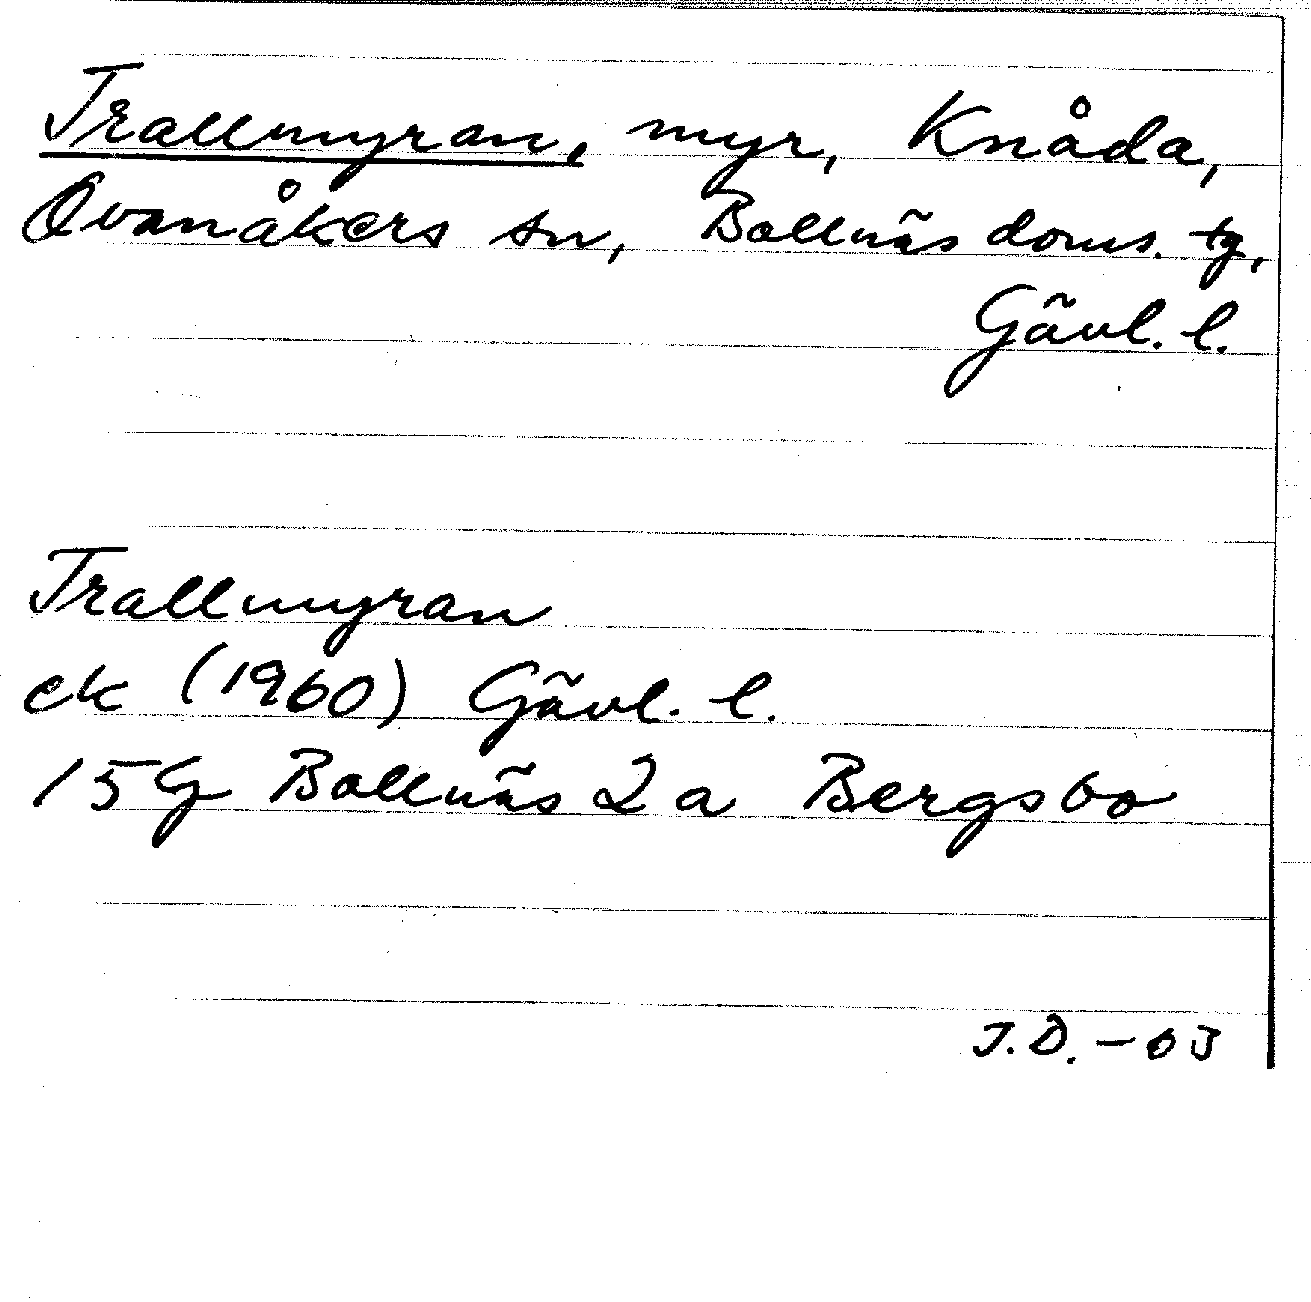 Trallmyran, myr, Knåda,
Ovanåkers sn, Bollnäs doms. tg,
Gävl. l.
Trallmyran
ek (1960) Gävl. l.
15G Bollnäs 2a Bergsbo
J.D. - 63